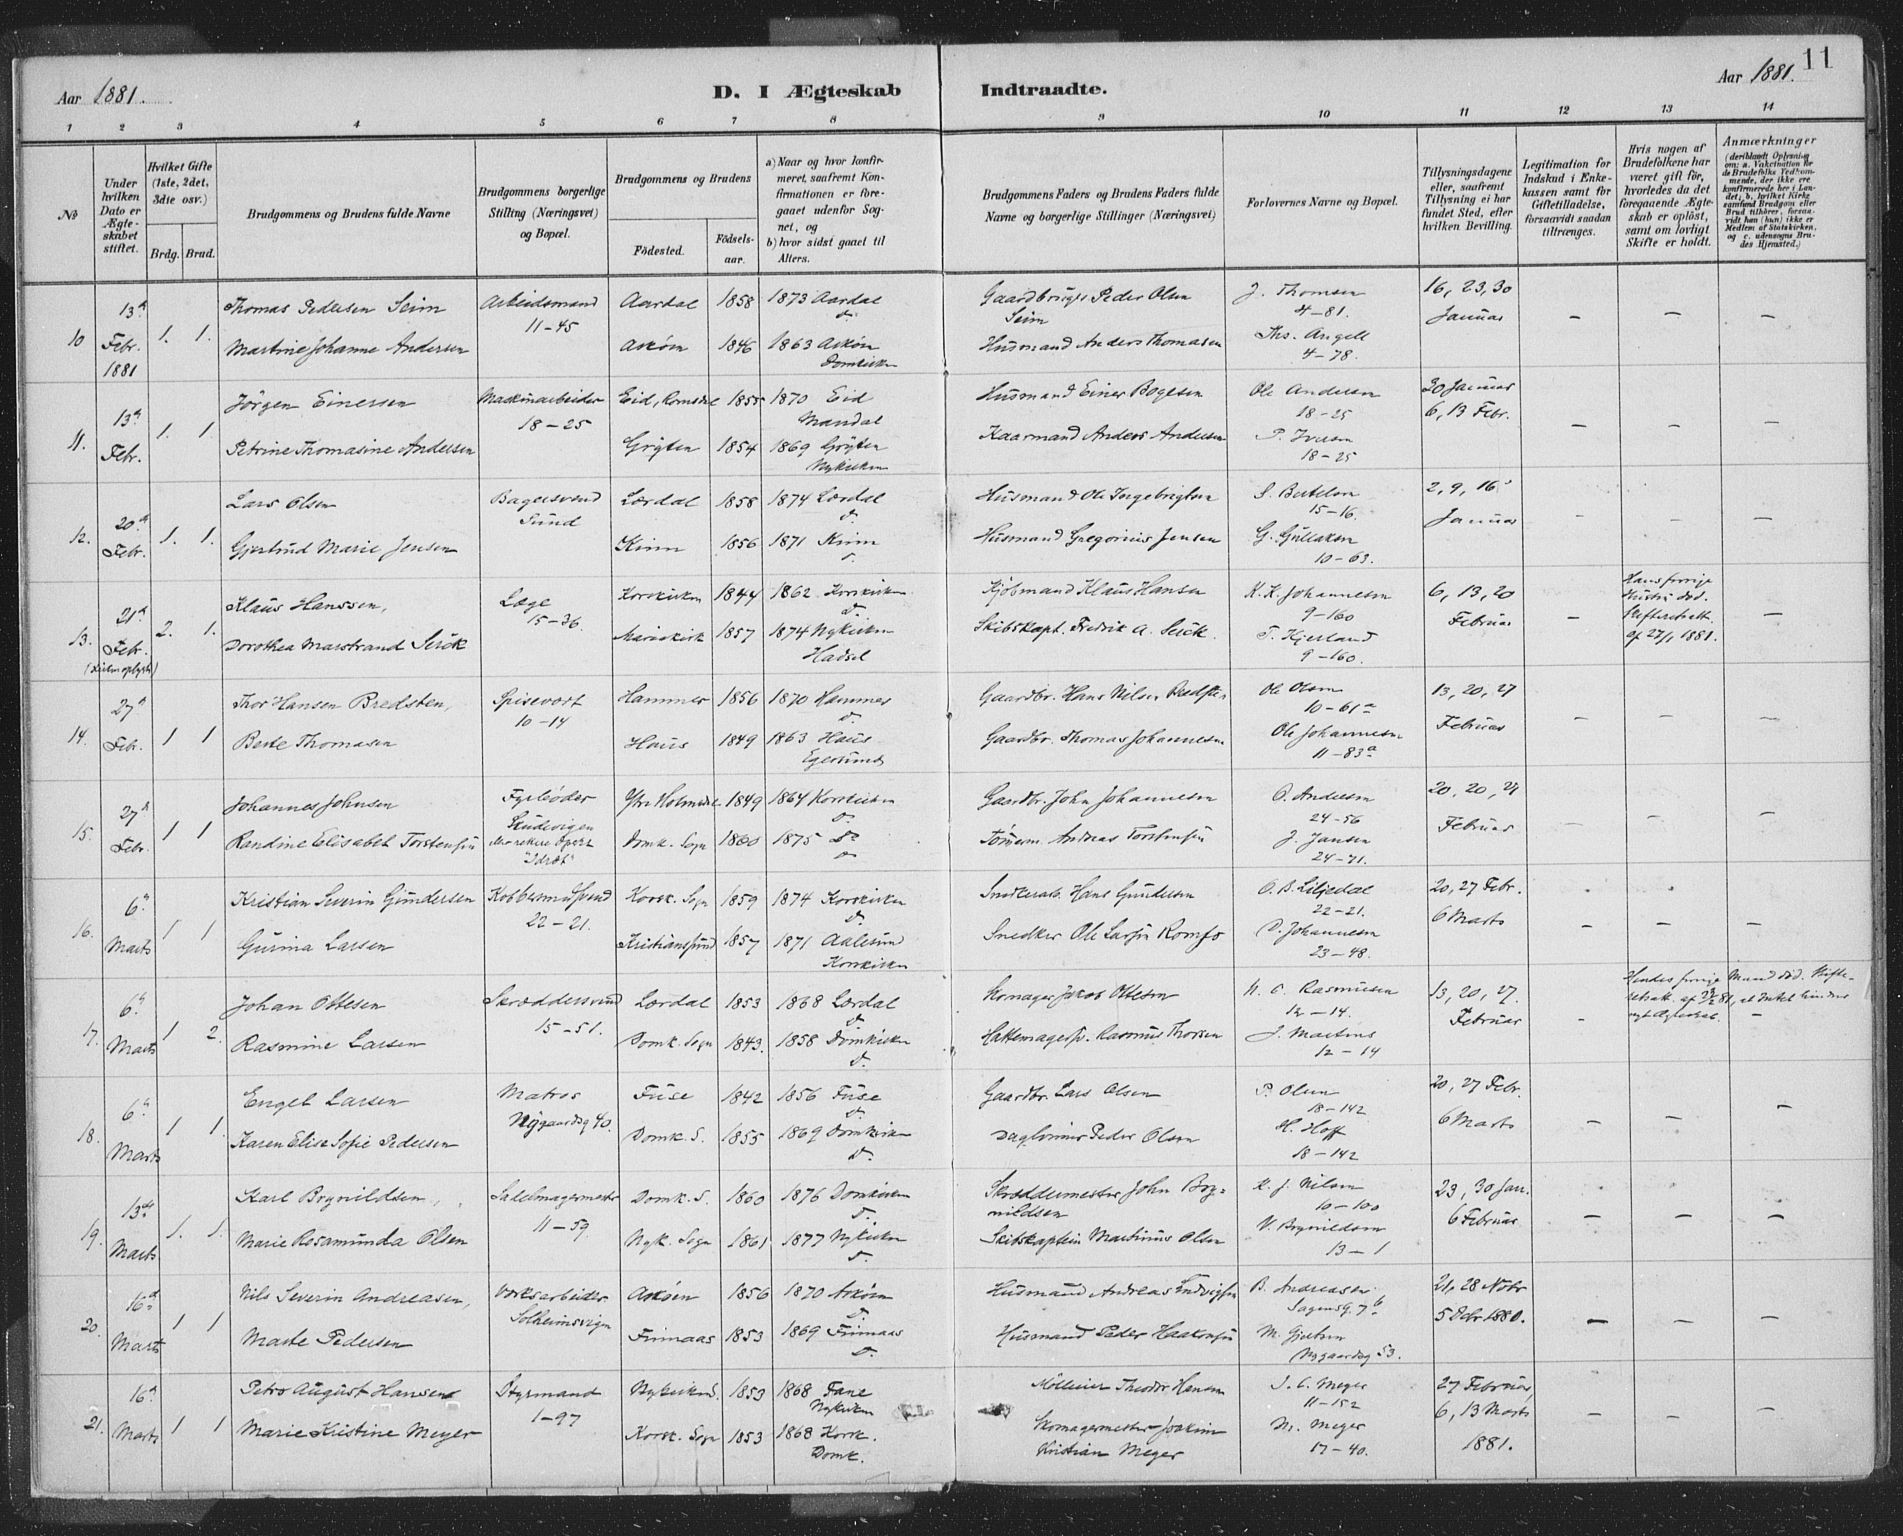 11
Aar 1881.
D. I Ægteskab Indtraadte.
Aar 1881.
1 2 3 4 5 6 7 8 9 10 11 12 13 14
No
Under hvilken Dato er Ægteskabet stiftet.
Hvilket Gifte (1ste, 2det, 3die osv.)
Brdg. Brud.
Brudgommens og Brudens fulde Navne
Brudgommens borgerlige Stilling (Næringsvei) og Bopæl.
Brudgommens og Brudens
Födested. Födsels-aar.
a) Naar og hvor konfirmeret, saafremt Konfirmationen er foregaaet udenfor Sognet, og
b) hvor sidst gaaet til Alters.
Brudgommens Faders og Brudens Faders fulde Navne og borgerlige Stillinger (Næringsvei)
Forlovernes Navne og Bopæl.
Tillysningsdagene eller, saafremt Tillysning ei har fundet Sted, efter hvilken Bevilling.
Legitimation for Indskud i Enkekassen samt for Giftetilladelse, forsaavidt saadan tiltrænges.
Hvis nogen af Brudefolkene har været gift för, hvorledes da det foregaaende Ægteskab er oplöst, samt om lovligt Skifte er holdt.
Anmærkninger
(deriblandt Oplysning om: a. Vakcination for de Brudefolks Vedkommende, der ikke ere konfirmerede her i Landet, b. hvilket Kirkesamfund Brudgom eller Brud tilhörer, forsaavidt han (hun) ikke er Medlem af Statskirken, og c. udensogns Brudes Hjemsted.)
10 13de Febr. 1881 1. 1. Thomas Pedersen Seim Arbeidsmand 11-45 Aardal 1858 1873 Aardal d. Gaardbruger Peder Olsen Seim J. Thomsen 4-81. 16, 23, 30 Januar - - -
Martine Johanne Andersen Askøen 1846 1863 Askøen Domkirken Husmand Anders Thomasen Ths. Angell 4-78.
11. 13de Febr. 1. 1. Jörgen Einersen Maskinarbeider 18-25 Eid, Romsdal 1855 1870 Eid Mandal Husmand Einer Bogesen Ole Andersen 18-25 30 Januar 6, 13 Febr. - - -
Petrine Thomasine Andersen Grÿten 1854 1869 Grÿten Nykirken Kaarmand Anders Andersen P. Iversen 18-25
12. 20de Febr. 1. 1. Lars Olsen Bagersvend Sund Lærdal 1858 1874 Lærdal d. Husmand Ole Ingebrigtsen S. Bertelsen 15-16. 2, 9, 16 Januar - - -
Gjertrud Marie Jensen Kinn 1856 1871 Kinn d. Husmand Gregorius Jensen G. Gullaksen 10-63.
13. 21de Febr. 2. 1. Klaus Hanssen, Læge 15-36. Korskirken 1844 1862 Korskirken d. Kjøbmand Klaus Hansen K. K. Johannesen 9-160 6, 13, 20 Februar - Hans forrige Hustru död. Skifteretsatt. af 27/1 1881. -
Dorothea Marstrand Serck Mariakirk 1857 1874 Nykirken Hadsel Skibskapt. Fredrik A. Serck. T. Kjerland 9-160.
14. 27de Febr. 1 1 Thor Hansen Bredsten, Spisevert 10-14 Hammer 1856 1870 Hammer d. Gaardbr. Hans Nilsen Bredsten Ole Olsen 10-61a 13, 20, 27 Februar - - -
Berte Thomasen Haus 1849 1863 Haus Egersund Gaardbr. Thomas Johannesen Ole Johannesen 11-83a
15. 27de Febr. 1 1 Johannes Johnsen Fyrbøder Skudevigen Ytre Holmedal 1849 1864 Korskirken d. Gaardbr. John Johannesen O. Andersen 24-56 20, 20, 27 Februar - - -
Randine Elisabet Torstensen "Idræt" Domk. Sogn 1860 1875 do Tømmerm. Andreas Torstensen J. Jansen 24-71.
16. 6te Marts 1 1 Kristian Severin Gundersen Kobbersmedsvend 22-21. Korsk. Sogn 1859 1874 Korskirken d. Snedkerarb. Hans Gundersen O. B. Liljedal 22-21. 20, 27 Febr. 6 Marts - - -
Gurina Larsen Kristiansund 1857 1871 Aalesund Korskirken Snedker Ole Larsen Romfo P. Johannesen 23-48.
17. 6te Marts 1 2. Johan Ottesen Skræddersvend 15-51. Lærdal 1853 1868 Lærdal d. Skomager Jakob Ottesen N. C. Rasmusen 12-14. 13, 20, 27. Februar - Hendes forrige Mand död.
Rasmine Larsen Domk. Sogn 1843. 1858 Domkirken d. Hattemagersv. Rasmus Thorsen J. Martins 12-14
18. 6te Marts 1 1. Engel Larsen Matros Nygaardsg 40. Fuse 1842 1856 Fuse d. Gaardbr. Lars Olsen P. Olsen 18-142 20, 27 Febr. 6 Marts - - -
Karen Elise Sofie Pedersen Domk. S. 1855 1869 Domkirken d. Daglønner Peder Olsen H. Hoff 18-142
19. 13de Marts 1. 1. Karl Brynildsen, Sadelmagermester 11-59. Domk. S. 1860 1876 Domkirken d. Skræddermester John Brynildsen K. J. Nilsen 10-100 23, 30 Jan. 6 Februar - - -
Marie Rosamunda Olsen Nyk. Sogn 1861 1877 Nykirken d. Skibskaptein Martinius Olsen N. Brynildsen 13-1
20. 16de Marts 1 1 Nils Severin Andreasen, Værksarbeider Solheimsvigen Askøen 1856 1870 Askøen d. Husmand Andreas Ludvigsen B. Andreasen Sagensg. 7b 21, 28 Novbr 5 Decbr 1880. - - -
Marte Pedersen Finnaas 1853 1869 Finnaas d. Husmand Peder Haakonsen M. Gjertsen Nygaardsg 53.
21. 16de Marts 1 1 Petro August Hansen Styrmand 1-97 Nykirkens S. 1853 1868 Fane Nykirken Mölleier Theodor Hansen J. C. Meyer 11-152 27 Februar 6, 13 Marts 1881. - - -
Marie Kristine Meyer Korsk. Sogn 1853 1868 Korsk. Domk. Skomagermester Joakim Kristian Meyer M. Meyer 17-40.